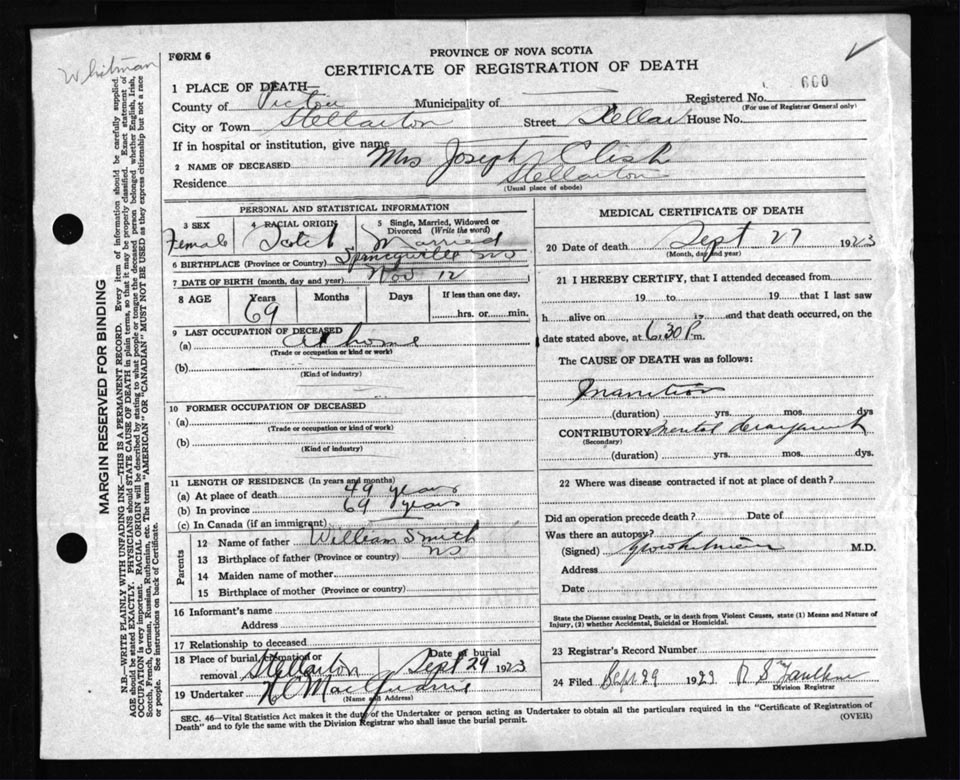 Whitman
FORM 6
PROVINCE OF NOVA SCOTIA
CERTIFICATE OF REGISTRATION OF DEATH
1 PLACE OF DEATH—
County of Pictou Municipality of Registered No. 600
(For use of Registrar General only)
City or Town Stellarton Street Stellar House No.
If in hospital or institution, give name
2 NAME OF DECEASED Mrs Joseph Clish
Residence Stellarton
(Usual place of abode)
PERSONAL AND STATISTICAL INFORMATION
3 SEX 4 RACIAL ORIGIN 5 Single, Married, Widowed or Divorced (Write the word)
Female Scotch Married
6 BIRTHPLACE (Province or Country) Springville NS
7 DATE OF BIRTH (month, day and year) Nov 12
8 AGE Years Months Days If less than one day,
69 hrs. or min.
9 LAST OCCUPATION OF DECEASED
(a) At home
(Trade or occupation or kind or work)
(b)
(Kind of industry)
10 FORMER OCCUPATION OF DECEASED
(a)
(Trade or occupation or kind of work)
(b)
(Kind of industry)
11 LENGTH OF RESIDENCE (In years and months)
(a) At place of death 49 years
(b) In province 69 years
(c) In Canada (if an immigrant)
Parents
12 Name of father William Smith
13 Birthplace of father (Province or country) NS
14 Maiden name of mother
15 Birthplace of mother (Province or country)
16 Informant's name
Address
17 Relationship to deceased
18 Place of burial, cremation or removal Stellarton Date of burial Sept 29 1923
19 Undertaker
(Name and Address)
MEDICAL CERTIFICATE OF DEATH
20 Date of death Sept 27 1923
(Month, day and year)
21 I HEREBY CERTIFY, that I attended deceased from
19 to 19 that I last saw
h alive on 19 and that death occurred, on the
date stated above, at 6.30 P m.
The CAUSE OF DEATH was as follows:
Inanition
(duration) yrs. mos. dys
CONTRIBUTORY Mental derangement
(Secondary)
(duration) yrs. mos. dys.
22 Where was disease contracted if not at place of death?
Did an operation precede death? Date of
Was there an autopsy?
(Signed) Whitman M.D.
Address
Date
State the Disease causing Death, or in death from Violent Causes, state (1) Means and Nature of
Injury, (2) whether Accidental, Suicidal or Homicidal.
23 Registrar's Record Number
24 Filed Sept 29 1923 R S Faulkner
Division Registrar
SEC. 46—Vital Statistics Act makes it the duty of the Undertaker or person acting as Undertaker to obtain all the particulars required in the "Certificate of Registration of
Death" and to fyle the same with the Division Registrar who shall issue the burial permit.
(OVER)
MARGIN RESERVED FOR BINDING
N.B.—WRITE PLAINLY WITH UNFADING INK—THIS IS A PERMANENT RECORD. Every item of information should be carefully supplied.
AGE should be stated EXACTLY. PHYSICIANS should STATE CAUSE OF DEATH in plain terms, so that it may be properly classified. Exact statement of
OCCUPATION is very important. RACIAL ORIGIN will be described by stating to what people or tongue the deceased person belonged whether English, Irish,
Scotch, French, German, Russian, Ruthenian, etc. The terms "AMERICAN" OR "CANADIAN" MUST NOT BE USED as they express citizenship but not a race
or people. See instructions on back of Certificate.